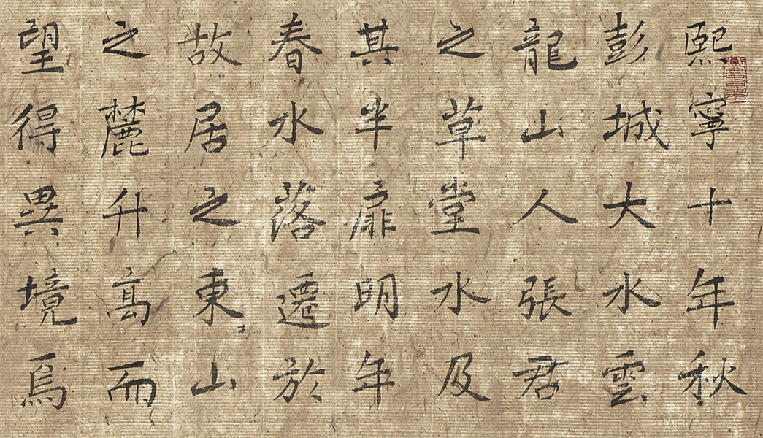 熙寧十年秋
彭城大水雲
龍山人張君
之草堂水及
其半扉明年
春水落遷於
故居之東山
之麓升高而
望得異境焉